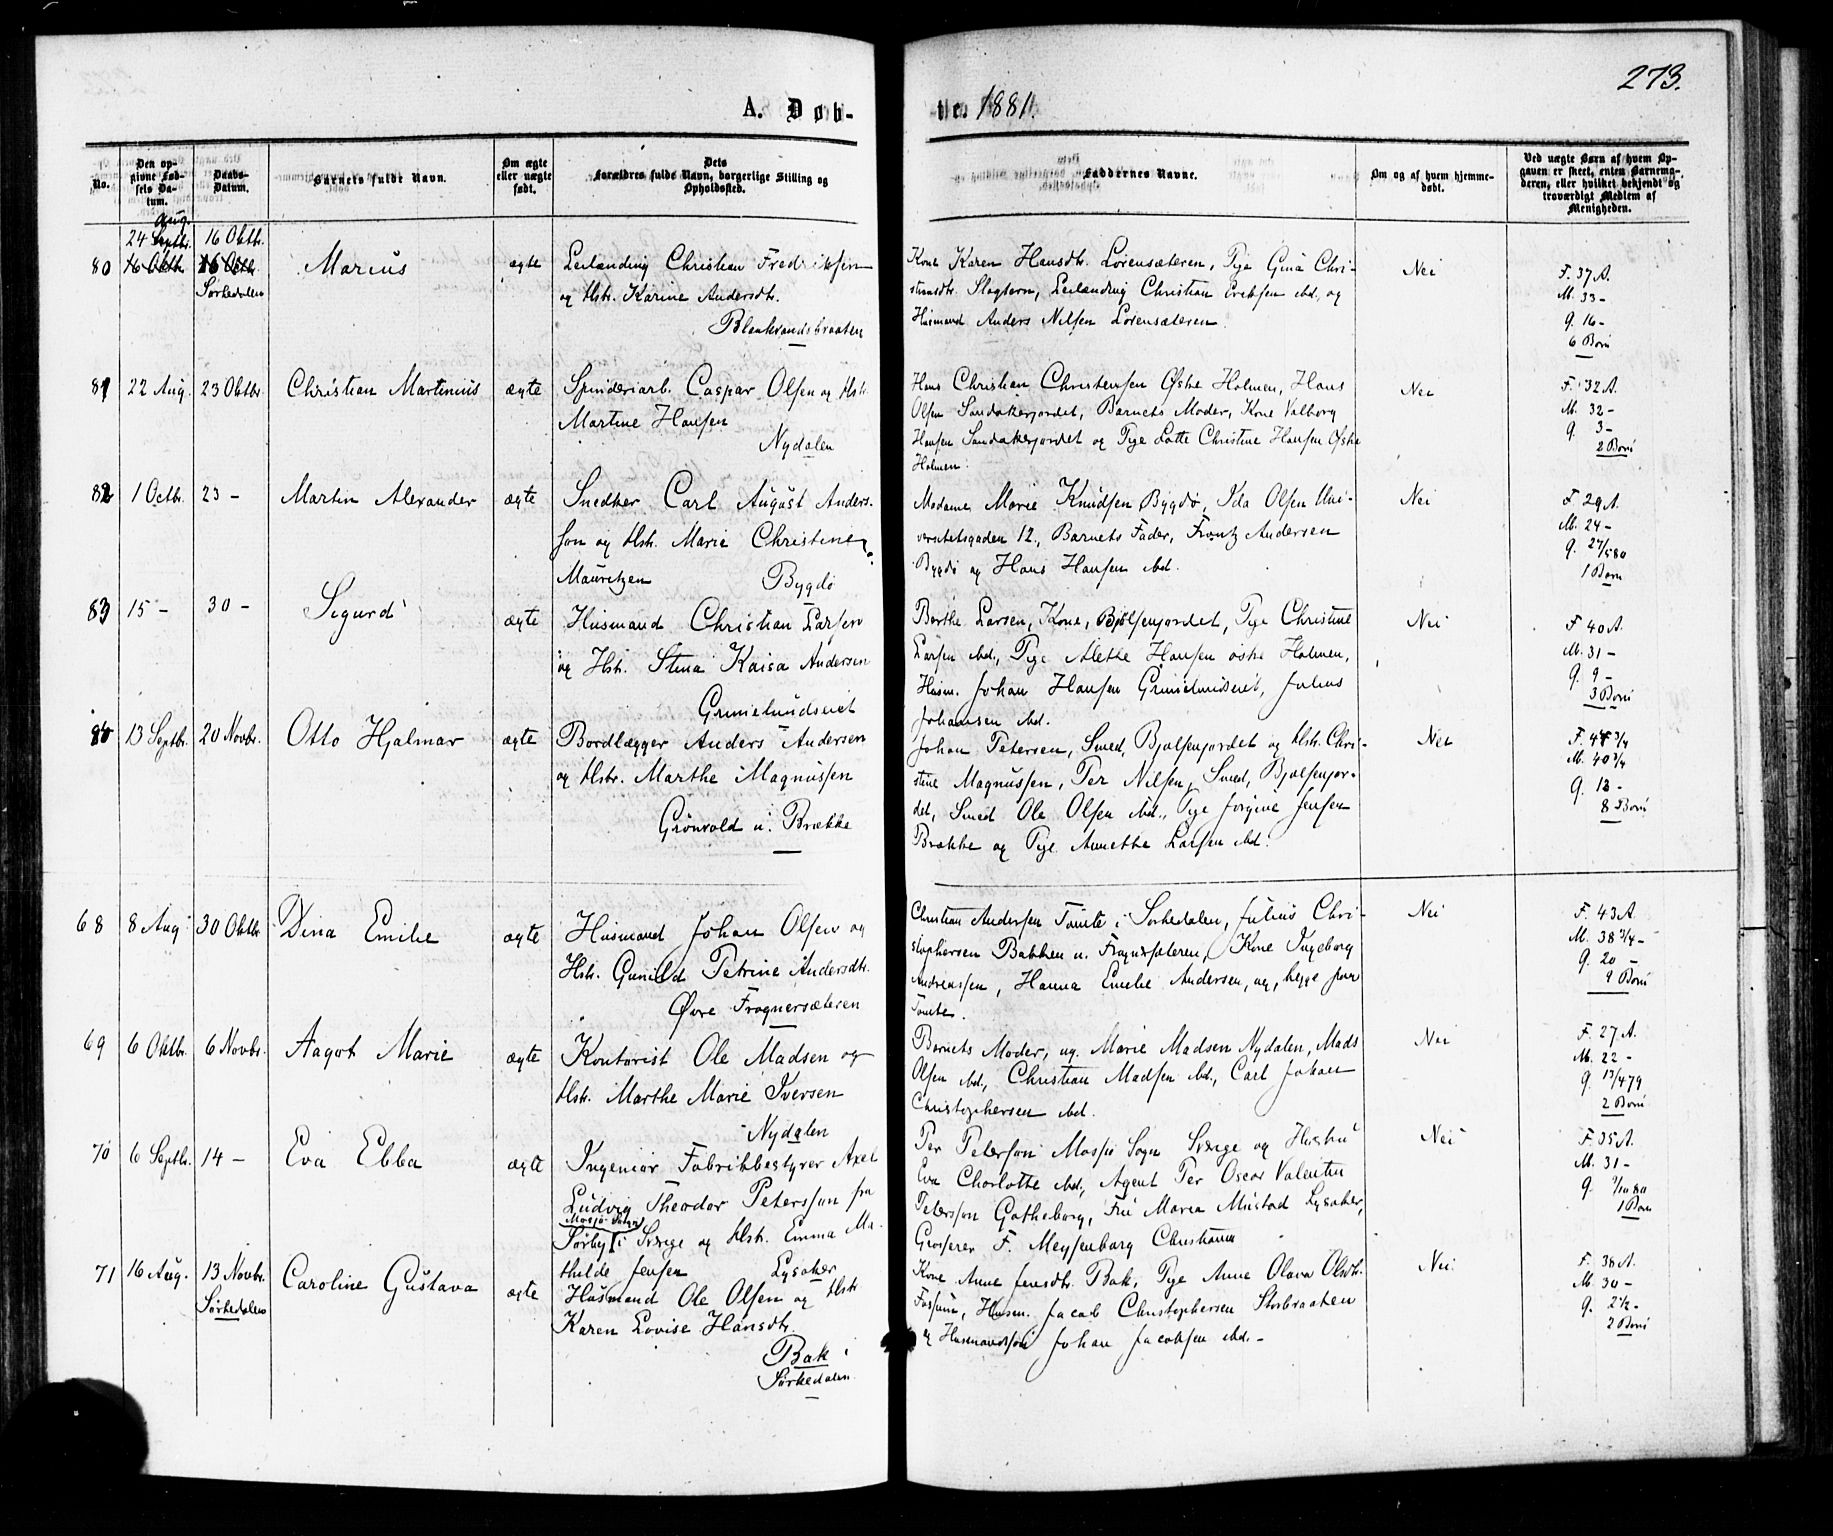 273.
A. Døb-
te. 1881.
No.
Den op-
givne Fød-
sels Da-
tum.
Daabs-
Datum.
Barnets fulde Navn.
Om ægte
eller uægte
født.
Dets
Forældres fulde Navn, borgerlige Stilling og
Opholdssted.
Faddernes Navne.
Om og af hvem hjemme-
døbt.
Ved uægte Børn af hvem Op-
gaven er skeet, enten Barnemo-
deren, eller hvilket bekjendt og
troværdigt Medlem af
Menigheden.
Aug.
24 Septbr. 16 Oktbr.
80 16 Oktbr. 16 Oktbr. Marius ægte Leilænding Christian Fredriksen
Sørkedalen og Hstr. Karine Andersdtr.
Blankvandsbraaten
Kone Karen Hansdtr. Lorensæteren, Pige Gina Chri-
stiansdtr. Slagtern, Leilænding Christian Eriksen ibd., og
Husmand Anders Nilsen Lorensæteren.
Nei
F. 37 A.
M. 33 -
g. 16 -
6 Børn
81 22 Aug. 23 Oktbr. Christian Martinius ægte Spinderiarb. Caspar Olsen og Hstr.
Martine Hansen
Nydalen
Hans Christian Christensen Østre Holmen, Hans
Olsen Sandakerjordet, Barnets Moder, Kone Valborg
Hansen Sandakerjordet og Pige Lotte Christine Hansen Østre
Holmen.
Nei
F. 32 A.
M. 32 -
g. 3 -
2 Børn
82 1 Octb. 23 - Martin Alexander ægte Snedker Carl August Anders-
son og Hstr. Marie Christine
Mauritzen Bygdø
Madame Marie Knudsen Bygdø, Ida Olsen Uni-
versitetsgaden 12., Barnets Fader, Frantz Andersen
Bygdø og Hans Hansen ibd.
Nei
F. 29 A.
M. 24 -
g. 27/5 80
1 Barn
83 15 - 30 - Sigurd ægte Husmand Christian Larsen
og Hstr. Stina Kaisa Andersen
Grimelundseiet
Berthe Larsen, Kone, Bjølsenjordet, Pige Christine
Larsen ibd., Pige Alethe Hansen østre Holmen,
Husm. Johan Hansen Grimelundseiet, Julius
Johansen ibd.
Nei
F. 40 A.
M. 31 -
g. 9 -
3 Børn
84 13 Septbr. 20 Novbr. Otto Hjalmar ægte Bordlægger Anders Andersen
og Hstr. Marthe Magnussen
Grønvold u. Brække
Johan Petersen, Smed, Bjølsenjordet og Hstr. Chri-
stine Magnussen, Per Nilsen, Smed, Bjølsenjor-
det, Smed Ole Olsen ibd., Pige Jørgine Jensen
Brække og Pige Annethe Larsen ibd.
Nei
M. 40 3/4
8 Børn
68 8 Aug. 30 Oktbr. Dina Emilie ægte Husmand Johan Olsen og
Hstr. Gunild Petrine Andersdtr.
Øvre Frognersæteren
Christian Andersen Tomte i Sørkedalen, Julius Chri-
stophersen Bakken u. Frognersæteren, Kone Ingeborg
Andreassen, Hanna Emilie Andersen, ug., begge paa
Tomte.
Nei
F. 43 A.
M. 38 3/4 -
g. 20 -
9 Børn
69 6 Oktbr. 6 Novbr. Aagot Marie ægte Kontorist Ole Madsen og
Hstr. Marthe Marie Iversen
Nydalen
Barnets Moder, ug. Marie Madsen Nydalen, Mads
Olsen ibd., Christian Madsen ibd., Carl Johan
Christophersen ibd.
Nei
F. 27 A.
M. 22 -
g. 13/4 79
2 Børn
70 6 Septbr. 14 - Eva Ebba ægte Ingeniør Fabrikbestyrer Axel
Ludvig Theodor Petersson fra
Mosjø Sogn
Sørby i Sverge og Hstr. Emma Ma-
thilde Jensen Lysaker
Per Peterson Mosjø Sogn Sverge og Hustru
Eva Charlotte ibd., Agent Per Oscar Valentin
Petersson Gøtheborg, Frú Maria Mustad Lysaker,
Grosserer F. Meyssenborg Christiania
Nei
F. 35 A.
M. 31 -
1 Barn
71 16 Aug. 13 Novbr. Caroline Gustava ægte Husmand Ole Olsen og Hstr
Sørkedalen Karen Lovise Hansdtr.
Bak i
Sørkedalen
Kone Anne Jensdtr. Bak, Pige Anne Olava Olsdtr.
Fossum, Husm. Jacob Christophersen Storbraaten
og Husmandssøn Johan Jacobsen ibd. -
Nei
F. 38 A.
M. 30 -
g. 2 1/2 -
2 Børn